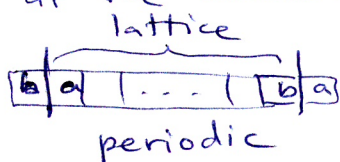 lattice
b a ... b a
periodic